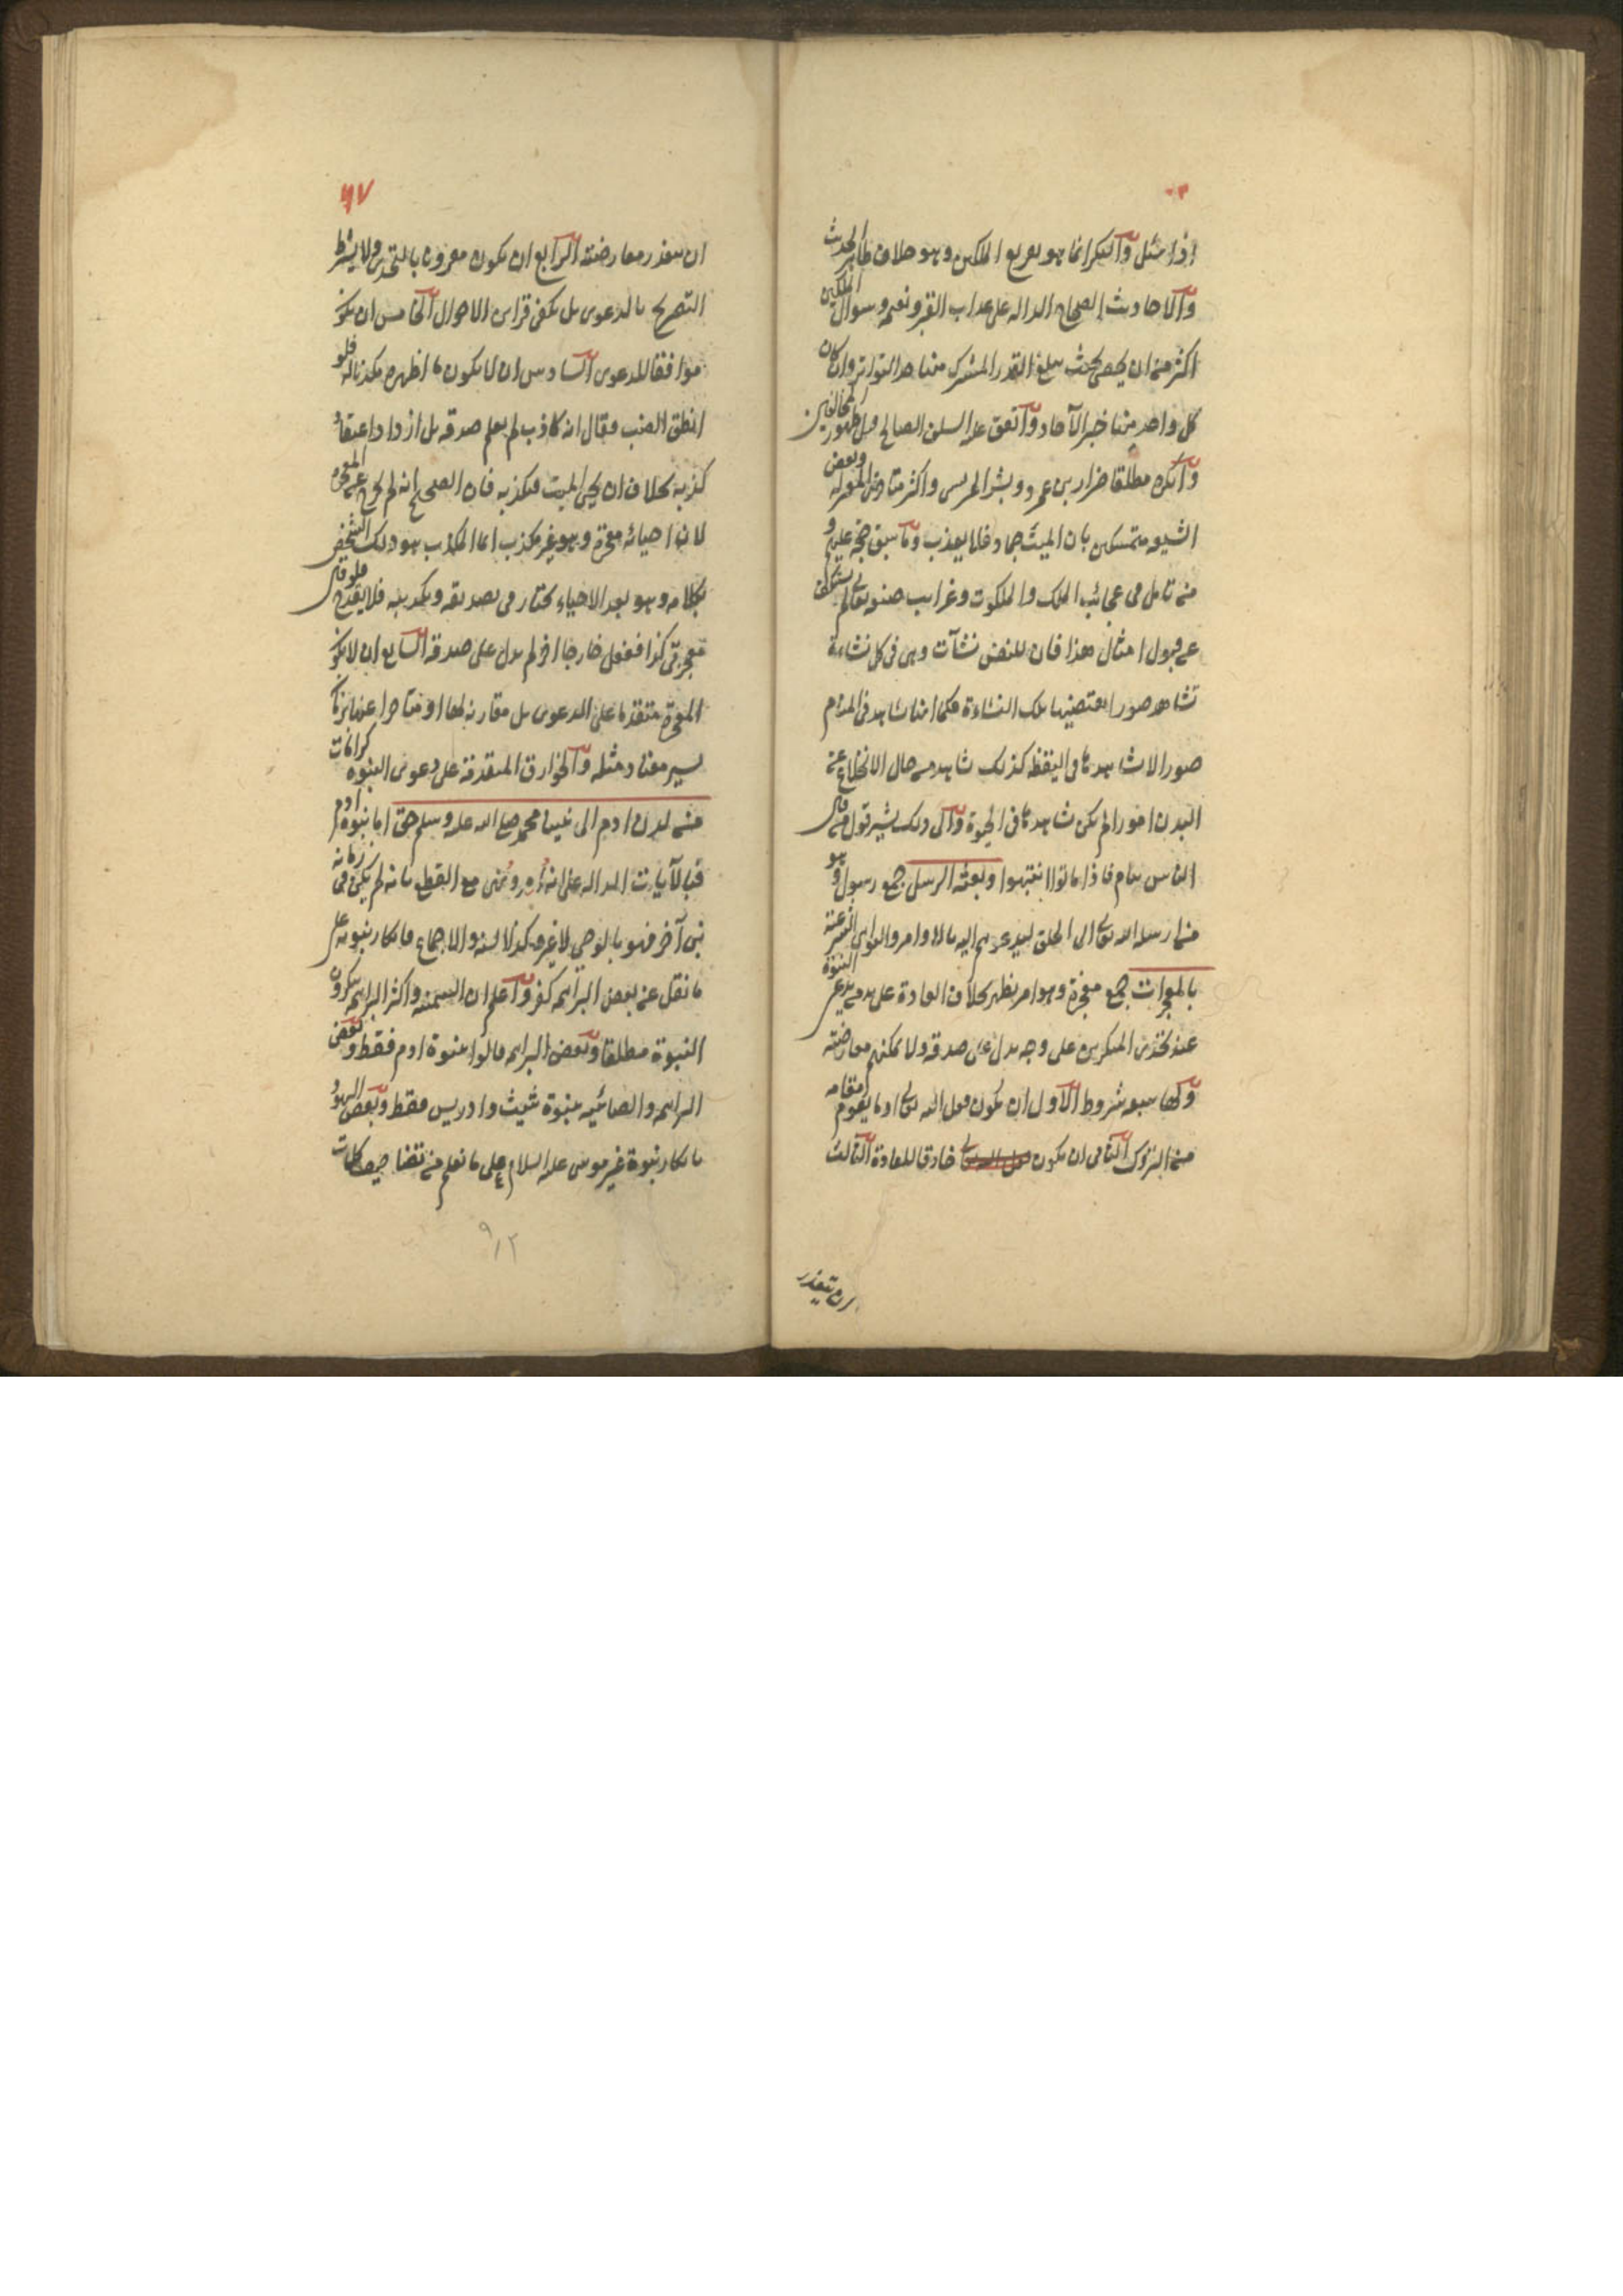 اذا سئل والنكير انما هو تقريع الملكين وهو خلاف ظاهر الحديث
والاحاديث الصحاح الدالة على عذاب القبر ونعيمه وسوال الملكين
اكثر من ان يحصى بحيث يبلغ القدر المشترك منها حد التواتر وان كان
كل واحد منها خبر الآحاد واتفق عليه السلف الصالح قبل ظهور المخالفين
وانكره مطلقا ضرار بن عمرو وبشر المريسى واكثر متاخرى المعتزلة وبعض
الشيعه متمسكين بان الميت جماد فلا يعذب وما سبق حجة عليهم و
من تامل فى عجائب الملك والملكوت وغرايب صنعه تعالى لم يستنكف
عن قبول امثال هذا فان للنفس نشآت وهى فى كل نشاءة
تشاهد صورا يقتضيها تلك النشاءة فكما انها تشاهد فى المنام
صورا لا تشاهدها فى اليقظة كذلك تشاهد فى حال الانخلاع عن
البدن امورا لم يكن تشاهدها فى الحيوة والى ذلك يشير قول من قال
الناس نيام فاذا ماتوا انتبهوا وبعثه الرسل جمع رسول وهو
من ارسله الله تعالى الى الخلق ليدعوهم اليه بالاوامر والنواهى الشرعية
بالمعجزات جمع معجزة وهو امر يظهر بخلاف العادة على يد مدعى النبوة
عند تحدى المنكرين على وجه يدل على صدقه ولا يمكنهم معارضته
ولها سبعه شروط الاول ان يكون فعل الله تعالى او ما يقوم مقامه
من التروك الثانى ان يكون خارقا للعادة الثالث
ان يتعذر
٩٧
ان يتعذر معارضته الرابع ان يكون مقرونا بالتحدى ولا يشترط
التصريح بالدعوى بل يكفى قراين الاحوال الخامس ان يكون
موافقا للدعوى السادس ان لا يكون ما اظهره مكذبا له فلو
انطق الضب فقال انه كاذب لم يعلم صدقه بل ازداد اعتقاد
كذبه بخلاف ان يحيى الميت فيكذبه فان الصحيح انه لم يخرج عن المعجزة
لان احيائه معجزة وهو غير مكذب انما المكذب هو ذلك الشخص
بكلامه وهو بعد الاحياء مختار فى تصديقه وتكذيبه فلا يقدح فلو قال
معجزتى كذا ففعل خارجا اخر لم يدل على صدقه السابع ان لا يكون
المعجزة متقدما على الدعوى بل مقارنه لها او متاخرا عنها بزمان
يسير معتاد مثله والخوارق المتقدمة على دعوى النبوه كرامات
من لدن ادم الى نبينا محمد صلى الله عليه وسلم حق اما نبوة ادم
فبالآيات الداله على انه امر ونهى مع القطع بانه لم يكن فى زمانه
نبى آخر فهو بالوحى لا غير وكذا السنه والاجماع فانكار نبوته على
ما نقل عن بعض البراهمه كفر واعلم ان السمنيه واكثر البراهمه ينكرون
النبوة مطلقا وبعض البراهمه قالوا بنبوة ادم فقط وبعض
البراهمه والصائبيه بنبوة شيث وادريس فقط وبعض اليهود
بانكار نبوة غير موسى عليه السلام على ما نعلم من
٩١٢